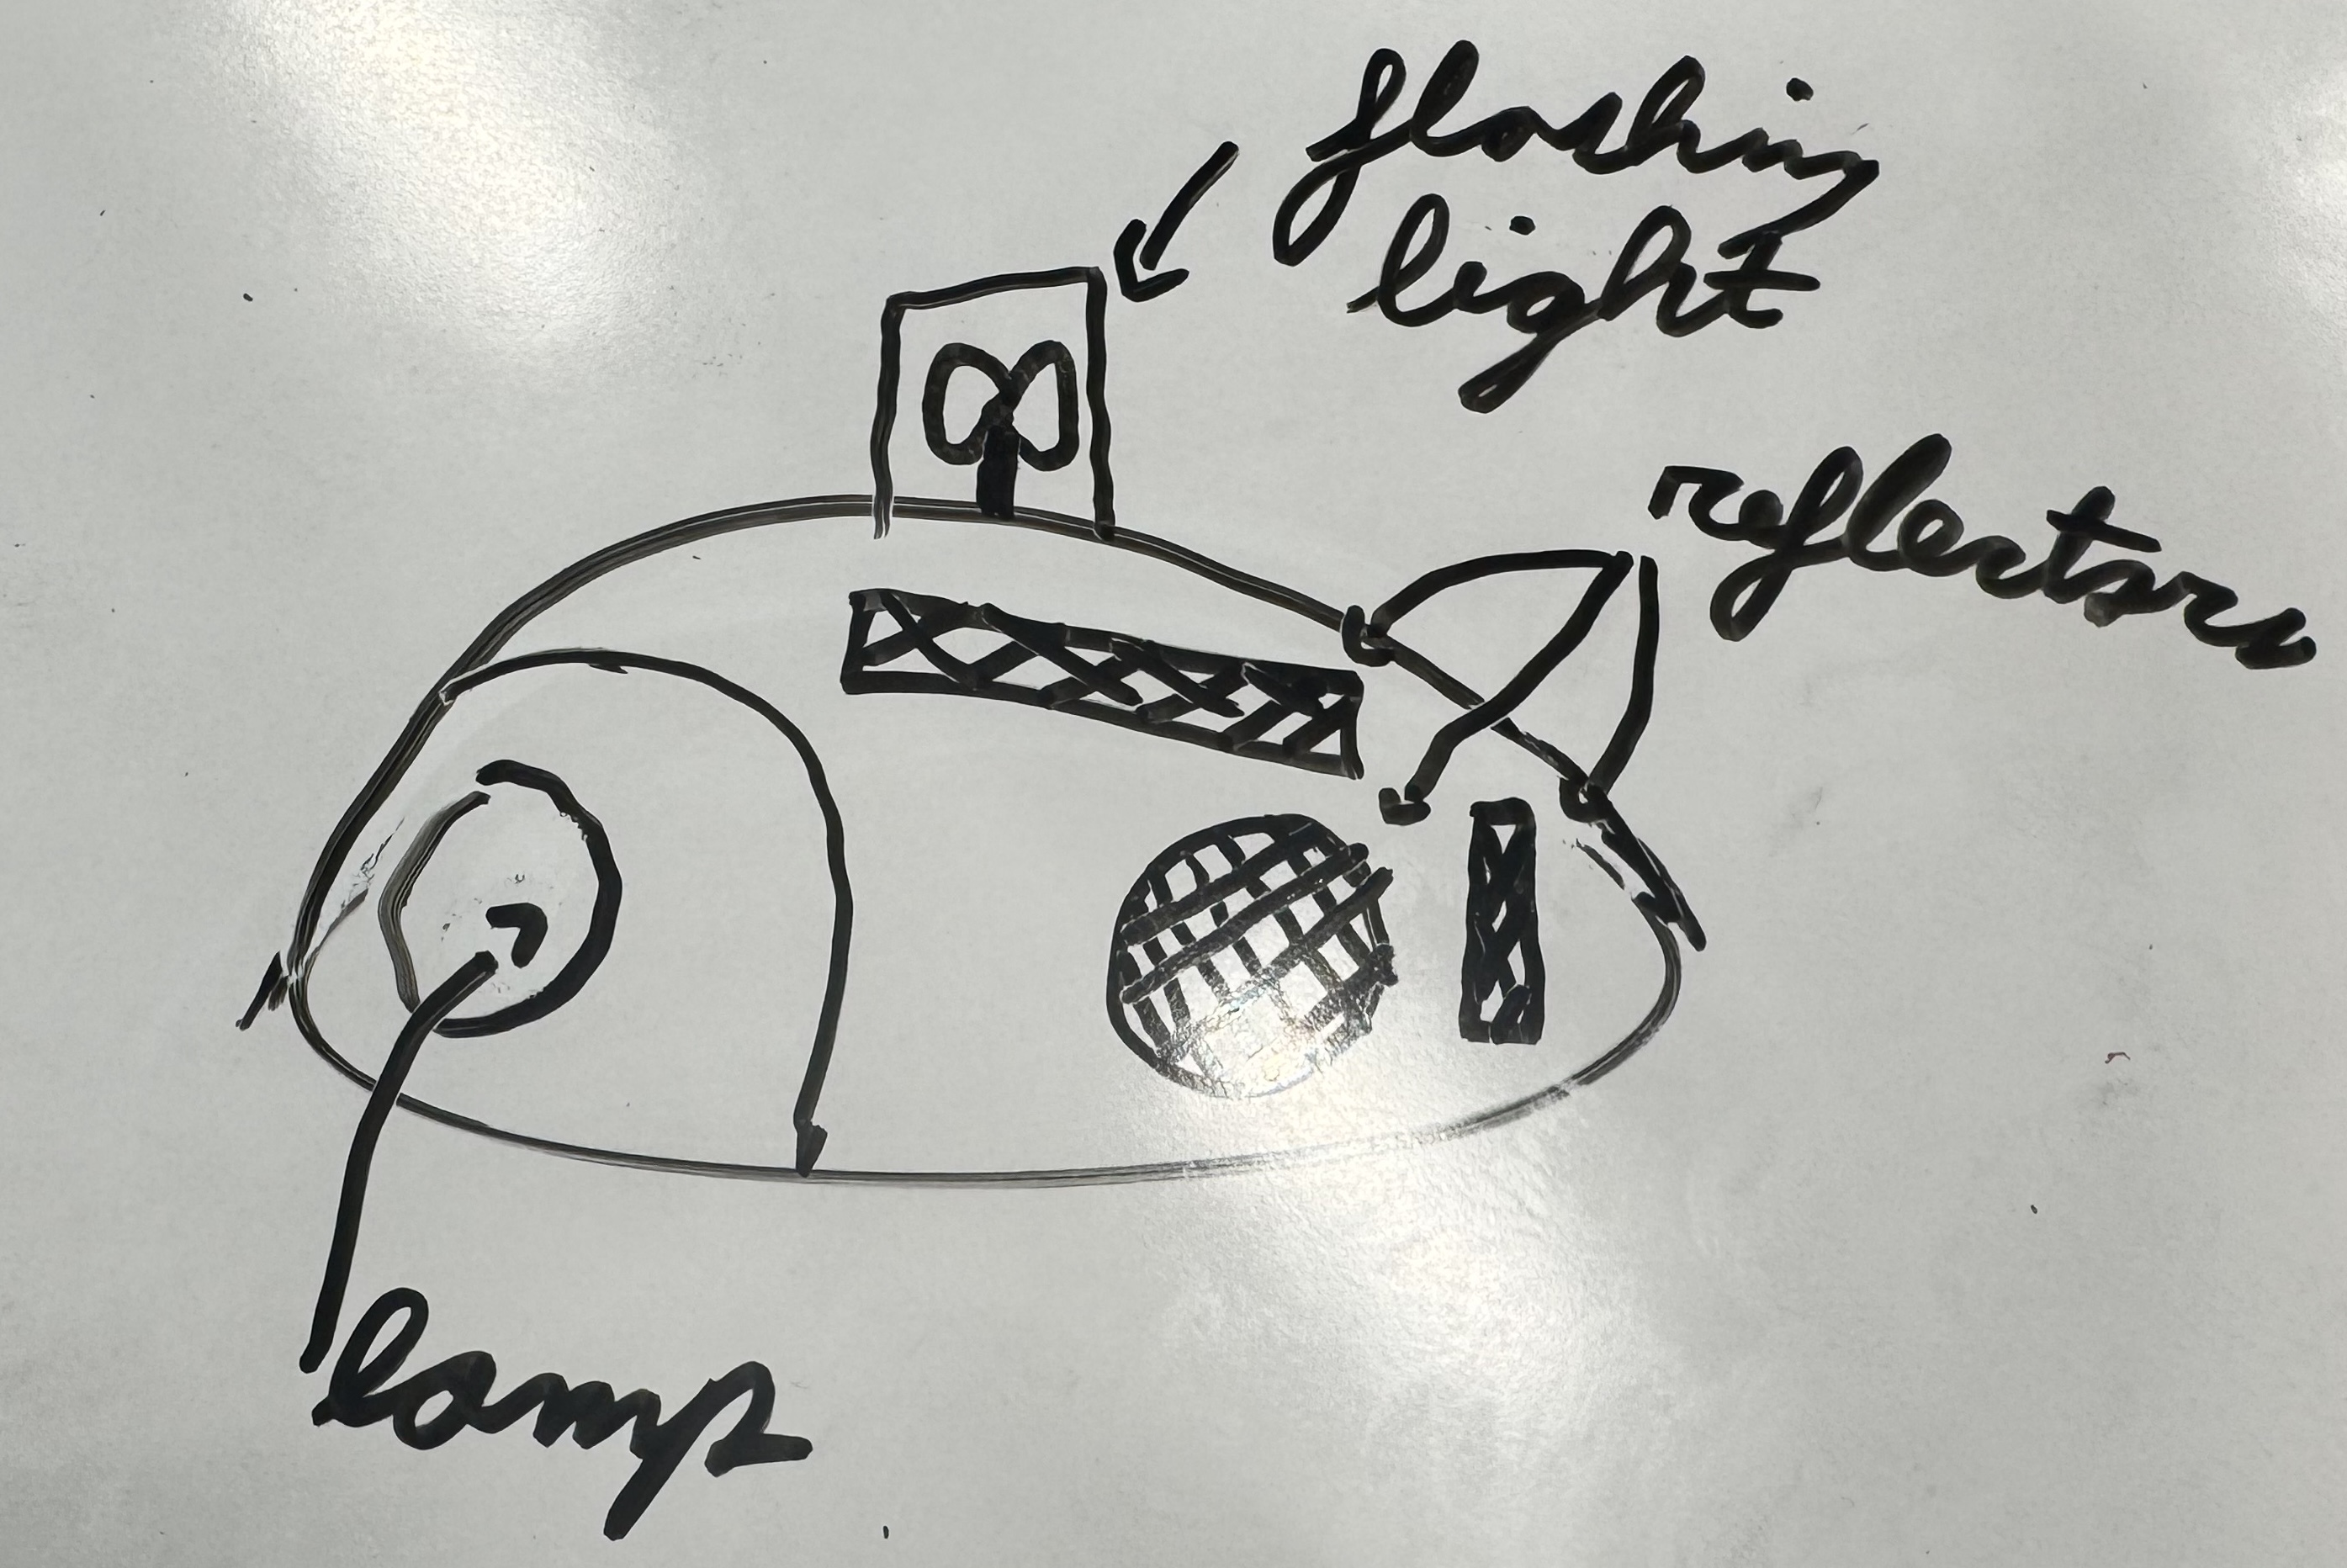 flashing
light
reflectors
lamp